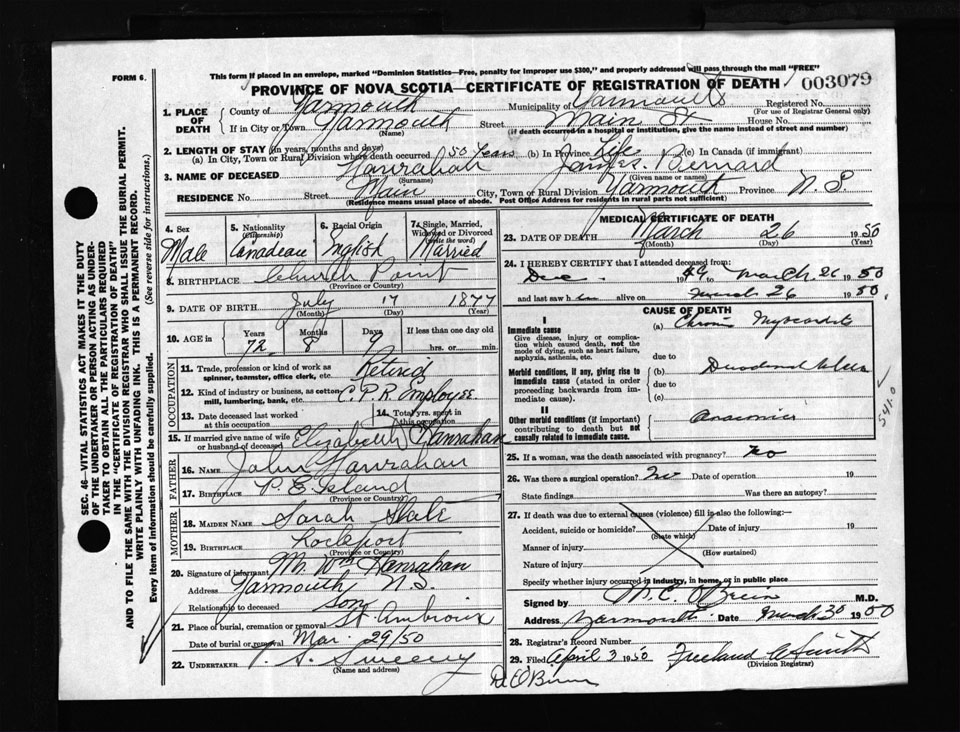 FORM 6.
This form if placed in an envelope, marked "Dominion Statistics—Free, penalty for improper use $300," and properly addressed will pass through the mail "FREE"
PROVINCE OF NOVA SCOTIA—CERTIFICATE OF REGISTRATION OF DEATH
003079
1. PLACE OF DEATH
County of Yarmouth Municipality of Yarmouth Registered No.
(For use of Registrar General only)
If in City or Town Yarmouth Street Main St. House No.
(Name) (if death occurred in a hospital or institution, give the name instead of street and number)
2. LENGTH OF STAY (in years, months and days)
(a) In City, Town or Rural Division where death occurred 50 Years (b) In Province Life (c) In Canada (if immigrant)
3. NAME OF DECEASED Hanrahan James Bernard
(Surname) (Given name or names)
RESIDENCE No. Street Main City, Town or Rural Division Yarmouth Province N.S.
(Residence means usual place of abode. Post Office Address for residents in rural parts not sufficient)
4. Sex Male
5. Nationality (Citizenship) Canadean
6. Racial Origin English
7. Single, Married, Widowed or Divorced (write the word) Married
8. BIRTHPLACE Church Point
(Province or Country)
9. DATE OF BIRTH July 17 1877
(Month) (Day) (Year)
10. AGE in Years Months Days If less than one day old
72 8 9 hrs. or min.
OCCUPATION
11. Trade, profession or kind of work as spinner, teamster, office clerk, etc. Retired
12. Kind of industry or business, as cotton mill, lumbering, bank, etc. C.P.R. Employee.
13. Date deceased last worked at this occupation
14. Total yrs. spent in this occupation
15. If married give name of wife or husband of deceased Elizabeth Hanrahan
FATHER
16. NAME John Hanrahan
17. BIRTHPLACE P. E Island
(Province or Country)
MOTHER
18. MAIDEN NAME Sarah
19. BIRTHPLACE
(Province or Country)
20. Signature of informant Mr. Wm Hanrahan
Address Yarmouth N.S.
Relationship to deceased son
21. Place of burial, cremation or removal St. Ambroix
Date of burial or removal Mar. 29/50
22. UNDERTAKER Sweeny
(Name and address)
MEDICAL CERTIFICATE OF DEATH
23. DATE OF DEATH March 26 1950
(Month) (Day) (Year)
24. I HEREBY CERTIFY that I attended deceased from:
Dec. 1949 March 26 1950
and last saw h im alive on March 26 1950.
CAUSE OF DEATH
I
Immediate cause
Give disease, injury or complication which caused death, not the mode of dying, such as heart failure, asphyxia, asthenia, etc.
(a) Chronic Myocarditis
due to
Morbid conditions, if any, giving rise to immediate cause (stated in order of proceeding backwards from immediate cause)
(b) Duodenal Ulcer
due to
(c)
II
Other morbid conditions (if important) contributing to death but not causally related to immediate cause.
541.0
25. If a woman, was the death associated with pregnancy? No
26. Was there a surgical operation? No Date of operation 19
State findings Was there an autopsy?
27. If death was due to external causes (violence) fill in also the following:
Accident, suicide or homicide? Date of injury 19
(State which)
Manner of injury
(How sustained)
Nature of injury
Specify whether injury occurred in industry, in home, or in public place
Signed by M.C. O'Brien M.D.
Address Yarmouth Date March 30 1950
28. Registrar's Record Number
29. Filed April 3 1950 Freeland Smith
(Division Registrar)
Dr O'Brien
SEC. 46—VITAL STATISTICS ACT MAKES IT THE DUTY
OF THE UNDERTAKER OR PERSON ACTING AS UNDER-
TAKER TO OBTAIN ALL THE PARTICULARS REQUIRED
IN THE "CERTIFICATE OF REGISTRATION OF DEATH"
AND TO FILE THE SAME WITH THE DIVISION REGISTRAR WHO SHALL ISSUE THE BURIAL PERMIT.
WRITE PLAINLY WITH UNFADING INK. THIS IS A PERMANENT RECORD.
Every item of information should be carefully supplied. (See reverse side for instructions.)